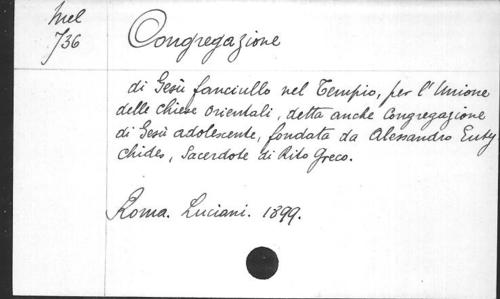 Mel
736
Congregazione
di Gesù fanciullo nel Tempio, per l'Unione
delle chiese orientali, detta anche Congregazione
di Gesù adolescente, fondata da Alessandro Euty
chides, Sacerdote di Rito Greco.
Roma. Luciani. 1899.